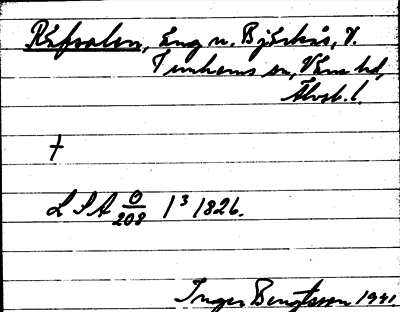 Räfvalen, Äng u. Björkås, V.
Tunhems sn, Väne hd,
Älvsb. l.
†
LSA O/208 1³ 1826.
Inger Bengtsson 1941